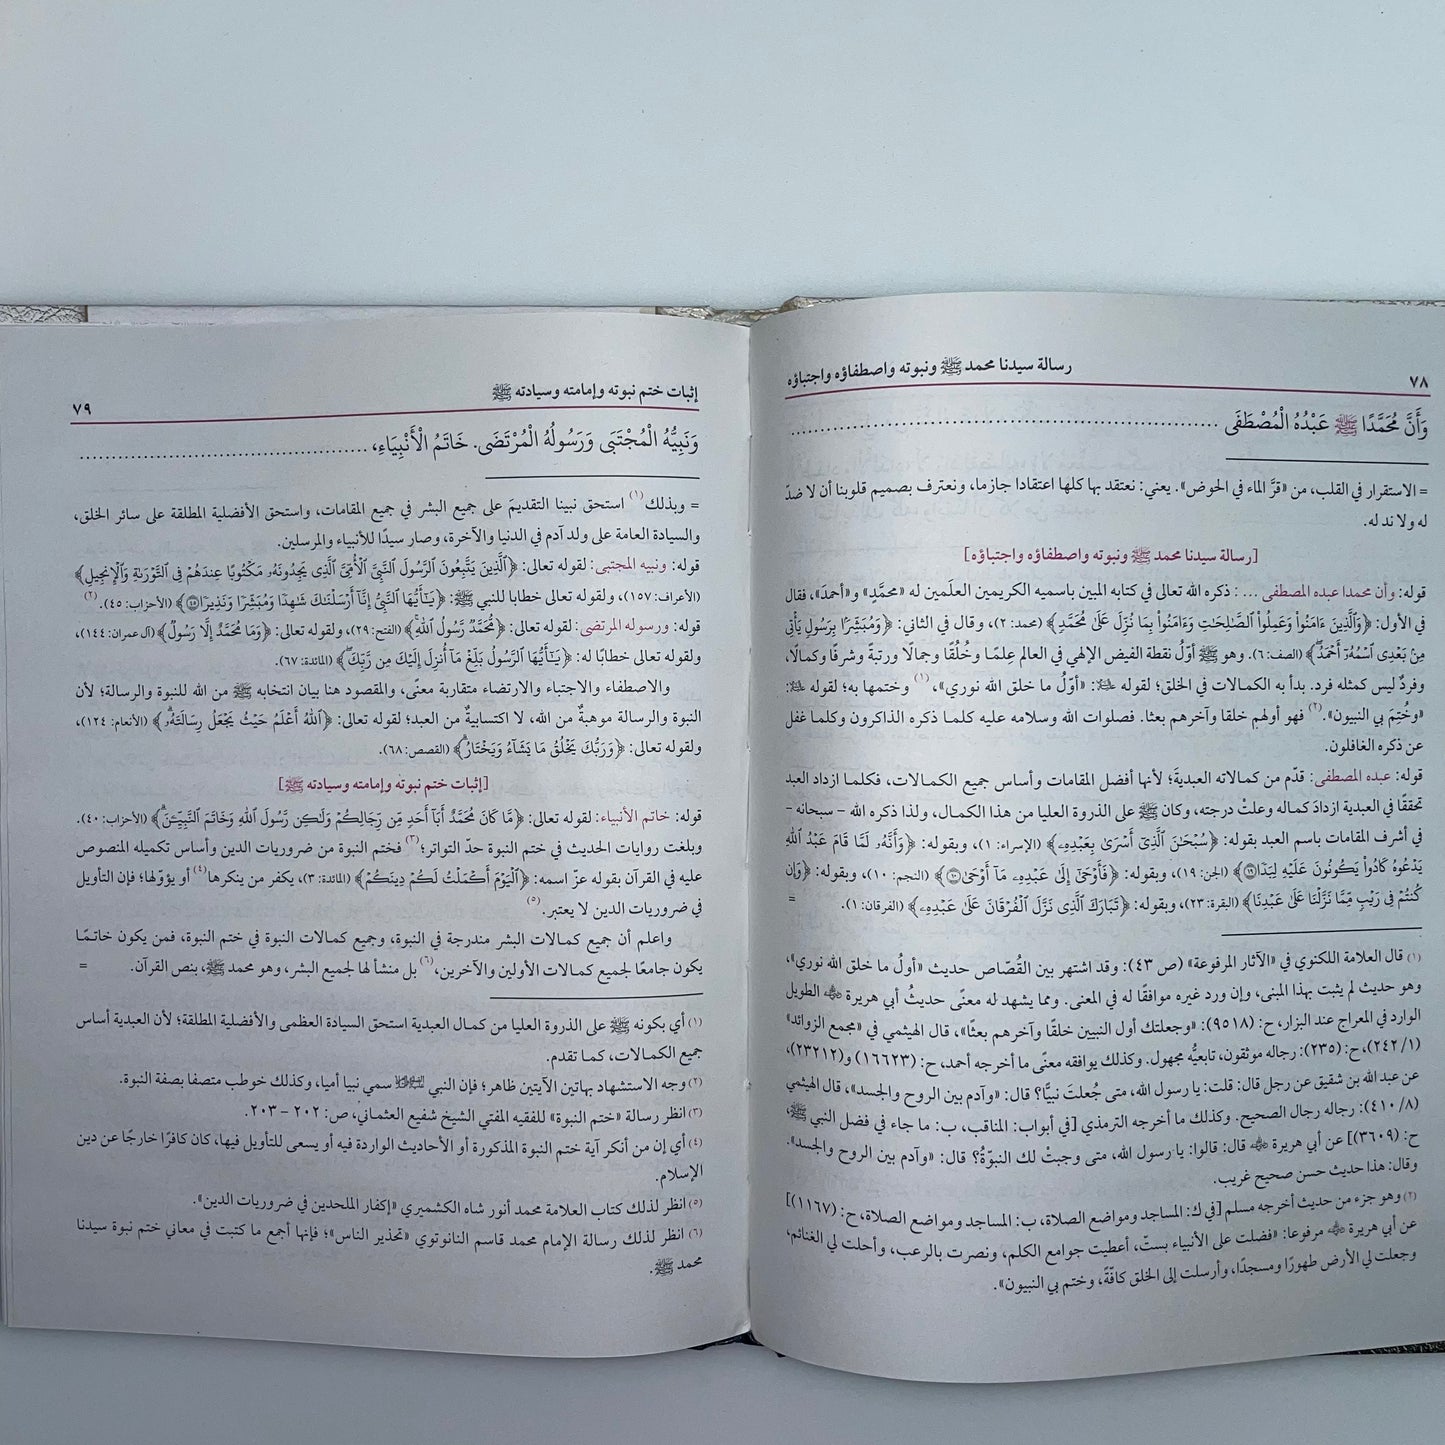 ٧٨
رسالة سيدنا محمد ﷺ ونبوته واصطفاؤه واجتباؤه
وَأَنَّ مُحَمَّدًا ﷺ عَبْدُهُ الْمُصْطَفَى ........................................................
= الاستقرار في القلب، من «قرَّ الماء في الحوض». يعني: نعتقد بها كلها اعتقادا جازما، ونعترف بصميم قلوبنا أن لا ضدّ
له ولا ند له.
[رسالة سيدنا محمد ﷺ ونبوته واصطفاؤه واجتباؤه]
قوله: وأن محمدا عبده المصطفى ... : ذكره الله تعالى في كتابه المبين باسميه الكريمين العلَمين له «محمَّدٍ» و«أحمدَ»، فقال
في الأول: ﴿وَٱلَّذِينَ ءَامَنُواْ وَعَمِلُواْ ٱلصَّـٰلِحَـٰتِ وَءَامَنُواْ بِمَا نُزِّلَ عَلَىٰ مُحَمَّدٍ﴾ (محمد: ٢)، وقال في الثاني: ﴿وَمُبَشِّرًۢا بِرَسُولٍ يَأۡتِي
مِنۢ بَعۡدِي ٱسۡمُهُۥٓ أَحۡمَدُ﴾ (الصف: ٦). وهو ﷺ أوّلُ نقطة الفيض الإلهي في العالم عِلمًا وخُلُقًا وجمالا ورتبةً وشرفًا وكمالا،
وفردٌ ليس كمثله فرد. بدأ به الكمالات في الخلق؛ لقوله ﷺ: «أوّلُ ما خلق الله نوري»،(١) وختمها به؛ لقوله ﷺ:
«وخُتِمَ بي النبيون».(٢) فهو أولهم خلقا وآخرهم بعثا. فصلوات الله وسلامه عليه كلما ذكره الذاكرون وكلما غفل
عن ذكره الغافلون.
قوله: عبده المصطفى: قدّم من كمالاته العبديةَ؛ لأنها أفضل المقامات وأساس جميع الكمالات، فكلما ازداد العبد
تحققًا في العبدية ازدادَ كماله وعلتْ درجته، وكان ﷺ على الذروة العليا من هذا الكمال، ولذا ذكره الله – سبحانه –
في أشرف المقامات باسم العبد بقوله: ﴿سُبۡحَـٰنَ ٱلَّذِيٓ أَسۡرَىٰ بِعَبۡدِهِۦ﴾ (الإسراء: ١)، وبقوله: ﴿وَأَنَّهُۥ لَمَّا قَامَ عَبۡدُ ٱللَّهِ
يَدۡعُوهُ كَادُواْ يَكُونُونَ عَلَيۡهِ لِبَدٗا ١٩﴾ (الجن: ١٩)، وبقوله: ﴿فَأَوۡحَىٰٓ إِلَىٰ عَبۡدِهِۦ مَآ أَوۡحَىٰ ١٠﴾ (النجم: ١٠)، وبقوله: ﴿وَإِن
كُنتُمۡ فِي رَيۡبٖ مِّمَّا نَزَّلۡنَا عَلَىٰ عَبۡدِنَا﴾ (البقرة: ٢٣)، وبقوله: ﴿تَبَارَكَ ٱلَّذِي نَزَّلَ ٱلۡفُرۡقَانَ عَلَىٰ عَبۡدِهِۦ﴾ (الفرقان: ١). =
(١) قال العلامة اللكنوي في «الآثار المرفوعة» (ص ٤٣): وقد اشتهر بين القُصّاص حديث «أولُ ما خلق الله نوري»،
وهو حديث لم يثبت بهذا المبنى، وإن ورد غيره موافقًا له في المعنى. ومما يشهد له معنًى حديثُ أبي هريرة ﵁ الطويل
الوارد في المعراج عند البزار، ح: (٩٥١٨): «وجعلتك أول النبيين خلقًا وآخرهم بعثًا»، قال الهيثمي في «مجمع الزوائد»
(١/ ٢٤٢)، ح: (٢٣٥): رجاله موثقون، تابعيُّه مجهول. وكذلك يوافقه معنًى ما أخرجه أحمد، ح: (١٦٦٢٣) و(٢٣٢١٢)،
عن عبد الله بن شقيق عن رجل قال: قلت: يا رسول الله، متى جُعلتَ نبيًّا؟ قال: «وآدم بين الروح والجسد»، قال الهيثمي
(٨/ ٤١٠): رجاله رجال الصحيح. وكذلك ما أخرجه الترمذي [في أبواب: المناقب، ب: ما جاء في فضل النبي ﷺ،
ح: (٣٦٠٩)] عن أبي هريرة ﵁ قال: قالوا: يا رسول الله، متى وجبتْ لك النبوّةُ؟ قال: «وآدم بين الروح والجسد».
وقال: هذا حديث حسن صحيح غريب.
(٢) وهو جزء من حديث أخرجه مسلم [في ك: المساجد ومواضع الصلاة، ب: المساجد ومواضع الصلاة، ح: (١١٦٧)]
عن أبي هريرة ﵁ مرفوعا: «فضلت على الأنبياء بستّ، أعطيت جوامع الكلم، ونصرت بالرعب، وأحلت لي الغنائم،
وجعلت لي الأرض طهورًا ومسجدًا، وأرسلت إلى الخلق كافّةً، وختم بي النبيون».
إثبات ختم نبوته وإمامته وسيادته ﷺ
٧٩
وَنَبِيُّهُ الْمُجْتَبَى وَرَسُولُهُ الْمُرْتَضَى. خَاتَمُ الْأَنْبِيَاءِ، ........................................
= وبذلك(١) استحق نبينا التقديمَ على جميع البشر في جميع المقامات، واستحق الأفضلية المطلقة على سائر الخلق،
والسيادة العامة على ولد آدم في الدنيا والآخرة، وصار سيدًا للأنبياء والمرسلين.
قوله: ونبيه المجتبى: لقوله تعالى: ﴿ٱلَّذِينَ يَتَّبِعُونَ ٱلرَّسُولَ ٱلنَّبِيَّ ٱلۡأُمِّيَّ ٱلَّذِي يَجِدُونَهُۥ مَكۡتُوبًا عِندَهُمۡ فِي ٱلتَّوۡرَىٰةِ وَٱلۡإِنجِيلِ﴾
(الأعراف: ١٥٧)، ولقوله تعالى خطابا للنبي ﷺ: ﴿يَـٰٓأَيُّهَا ٱلنَّبِيُّ إِنَّآ أَرۡسَلۡنَـٰكَ شَـٰهِدٗا وَمُبَشِّرٗا وَنَذِيرٗا ٤٥﴾ (الأحزاب: ٤٥).(٢)
قوله: ورسوله المرتضى: لقوله تعالى: ﴿مُّحَمَّدٞ رَّسُولُ ٱللَّهِ﴾ (الفتح: ٢٩)، ولقوله تعالى: ﴿وَمَا مُحَمَّدٌ إِلَّا رَسُولٞ﴾ (آل عمران: ١٤٤)،
ولقوله تعالى خطابًا له: ﴿يَـٰٓأَيُّهَا ٱلرَّسُولُ بَلِّغۡ مَآ أُنزِلَ إِلَيۡكَ مِن رَّبِّكَ﴾ (المائدة: ٦٧).
والاصطفاء والاجتباء والارتضاء متقاربة معنًى، والمقصود هنا بيان انتخابه ﷺ من الله للنبوة والرسالة؛ لأن
النبوة والرسالة موهبةٌ من الله، لا اكتسابيةٌ من العبد؛ لقوله تعالى: ﴿ٱللَّهُ أَعۡلَمُ حَيۡثُ يَجۡعَلُ رِسَالَتَهُۥ﴾ (الأنعام: ١٢٤)،
ولقوله تعالى: ﴿وَرَبُّكَ يَخۡلُقُ مَا يَشَآءُ وَيَخۡتَارُ﴾ (القصص: ٦٨).
[إثبات ختم نبوته وإمامته وسيادته ﷺ]
قوله: خاتم الأنبياء: لقوله تعالى: ﴿مَّا كَانَ مُحَمَّدٌ أَبَآ أَحَدٖ مِّن رِّجَالِكُمۡ وَلَـٰكِن رَّسُولَ ٱللَّهِ وَخَاتَمَ ٱلنَّبِيِّـۧنَ﴾ (الأحزاب: ٤٠).
وبلغت روايات الحديث في ختم النبوة حدّ التواتر؛(٣) فختم النبوة من ضروريات الدين وأساس تكميله المنصوص
عليه في القرآن بقوله عزّ اسمه: ﴿ٱلۡيَوۡمَ أَكۡمَلۡتُ لَكُمۡ دِينَكُمۡ﴾ (المائدة: ٣)، يكفر من ينكرها(٤) أو يؤوّلها؛ فإن التأويل
في ضروريات الدين لا يعتبر.(٥)
واعلم أن جميع كمالات البشر مندرجة في النبوة، وجميع كمالات النبوة في ختم النبوة، فمن يكون خاتمًا
يكون جامعًا لجميع كمالات الأولين والآخرين،(٦) بل منشأ لها لجميع البشر، وهو محمد ﷺ، بنص القرآن. =
(١) أي بكونه ﷺ على الذروة العليا من كمال العبدية استحق السيادة العظمى والأفضلية المطلقة؛ لأن العبدية أساس
جميع الكمالات، كما تقدم.
(٢) وجه الاستشهاد بهاتين الآيتين ظاهر؛ فإن النبي ﷺ سمي نبيا أميا، وكذلك خوطب متصفا بصفة النبوة.
(٣) انظر رسالة «ختم النبوة» للفقيه المفتي الشيخ شفيع العثماني، ص: ٢٠٢ – ٢٠٣.
(٤) أي إن من أنكر آية ختم النبوة المذكورة أو الأحاديث الواردة فيه أو يسعى للتأويل فيها، كان كافرًا خارجًا عن دين
الإسلام.
(٥) انظر لذلك كتاب العلامة محمد أنور شاه الكشميري «إكفار الملحدين في ضروريات الدين».
(٦) انظر لذلك رسالة الإمام محمد قاسم النانوتوي «تحذير الناس»؛ فإنها أجمع ما كتبت في معاني ختم نبوة سيدنا
محمد ﷺ.